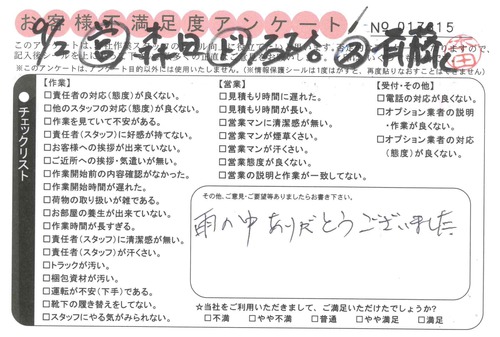 お客様不満足度アンケート
NO 017815
※このアンケートは、アンケート目的以外には使用いたしません。(※情報保護シールは1度はがすと、再度貼りなおすことはできません)
●チェックリスト
【作業】
□責任者の対応(態度)が良くない。
□他のスタッフの対応(態度)が良くない。
□作業を見ていて不安がある。
□責任者(スタッフ)に好感が持てない。
□お客様への挨拶が出来ていない。
□ご近所への挨拶・気遣いが無い。
□作業開始前の内容確認がなかった。
□作業開始時間が遅れた。
□荷物の取り扱いが雑である。
□お部屋の養生が出来ていない。
□作業時間が長すぎる。
□責任者(スタッフ)に清潔感が無い。
□責任者(スタッフ)が汗くさい。
□トラックが汚い。
□梱包資材が汚い。
□運転が不安(下手)である。
□靴下の履き替えをしてない。
□スタッフにやる気がみられない。
【営業】
□見積もり時間に遅れた。
□見積もり時間が長い。
□営業マンに清潔感が無い。
□営業マンが煙草くさい。
□営業マンが汗くさい。
□営業態度が良くない。
□営業の説明と作業が一致してない。
【受付・その他】
□電話の対応が良くない。
□オプション業者の説明
・作業が良くない。
□オプション業者の対応
(態度)が良くない。
その他、ご意見・ご要望等ありましたらお書き下さい。
雨の中ありがとうございました
☆当社をご利用いただきまして、ご満足いただけたでしょうか?
□不満 □やや不満 □普通 □やや満足 □満足